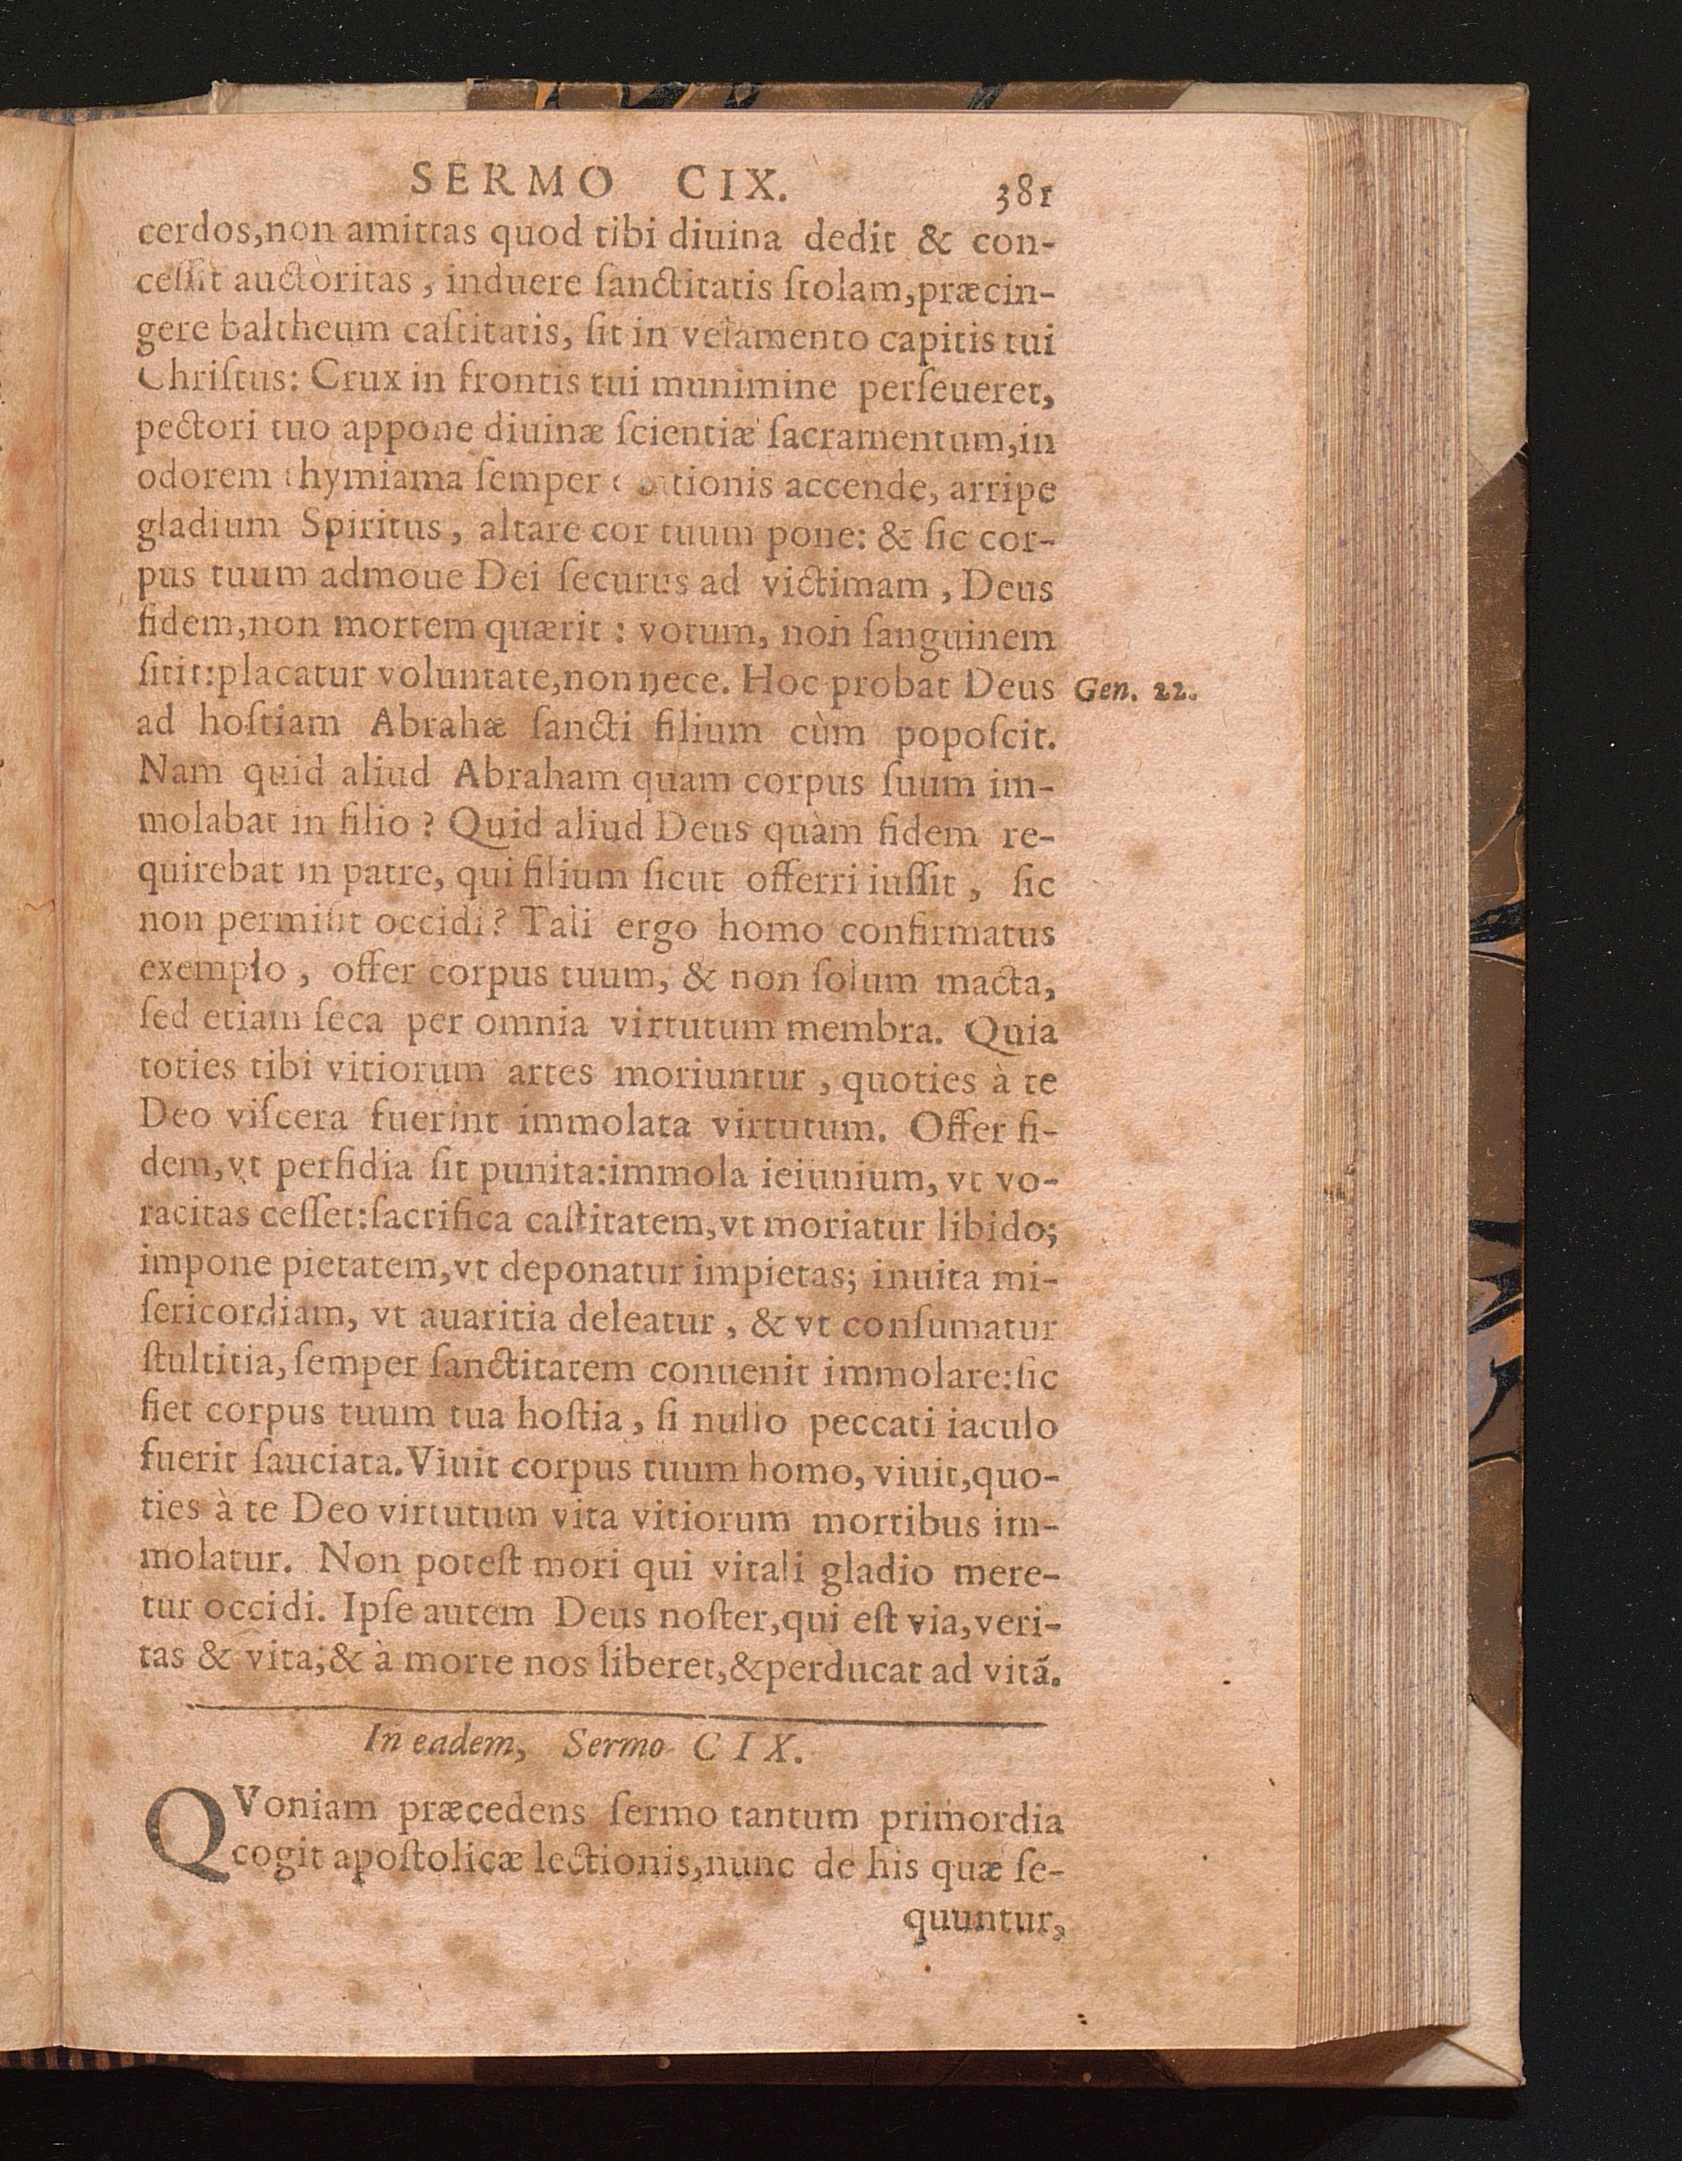 SERMO CIX. 381
cerdos,non amittas quod tibi diuina dedit & con-
ceſſit auctoritas, induere ſanctitatis ſtolam,præcin-
gere baltheum caſtitatis, ſit in velamento capitis tui
Chriſtus: Crux in frontis tui munimine perſeueret,
pectori tuo appone diuinæ ſcientiæ ſacramentum,in
odorem thymiama ſemper accende, arripe
gladium Spiritus, altare cor tuum pone: & ſic cor-
pus tuum admoue Dei ſecurus ad victimam, Deus
fidem,non mortem quærit: votum, non ſanguinem
ſitit:placatur voluntate,non nece. Hoc probat Deus Gen. 22.
ad hoſtiam Abrahæ ſancti filium cùm popoſcit.
Nam quid aliud Abraham quam corpus ſuum im-
molabat in filio? Quid aliud Deus quàm fidem re-
quirebat in patre, qui filium ſicut offerri iuſſit, ſic
non permiſit occidi? Tali ergo homo confirmatus
exemplo, offer corpus tuum, & non ſolum macta,
ſed etiam ſeca per omnia virtutum membra. Quia
toties tibi vitiorum artes moriuntur, quoties à te
Deo viſcera fuerint immolata virtutum. Offer fi-
dem,vt perfidia ſit punita:immola ieiunium, vt vo-
racitas ceſſet:ſacrifica caſtitatem,vt moriatur libido;
impone pietatem,vt deponatur impietas; inuita mi-
ſericordiam, vt auaritia deleatur, & vt conſumatur
ſtultitia, ſemper ſanctitatem conuenit immolare:ſic
fiet corpus tuum tua hoſtia, ſi nullo peccati iaculo
fuerit ſauciata. Viuit corpus tuum homo, viuit,quo-
ties à te Deo virtutum vita vitiorum mortibus im-
molatur. Non poteſt mori qui vitali gladio mere-
tur occidi. Ipſe autem Deus noſter,qui eſt via,veri-
tas & vita;& à morte nos liberet,& perducat ad vitã.
In eadem, Sermo CIX.
QVoniam præcedens ſermo tantum primordia
cogit apoſtolicæ lectionis,nunc de his quæ ſe-
quuntur,